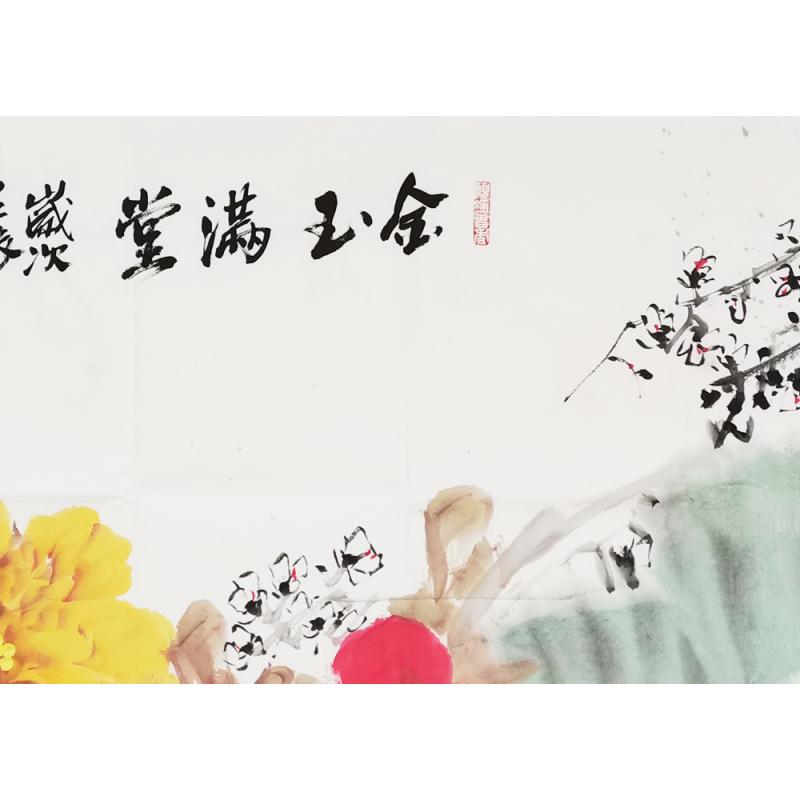 金玉滿堂
歲次